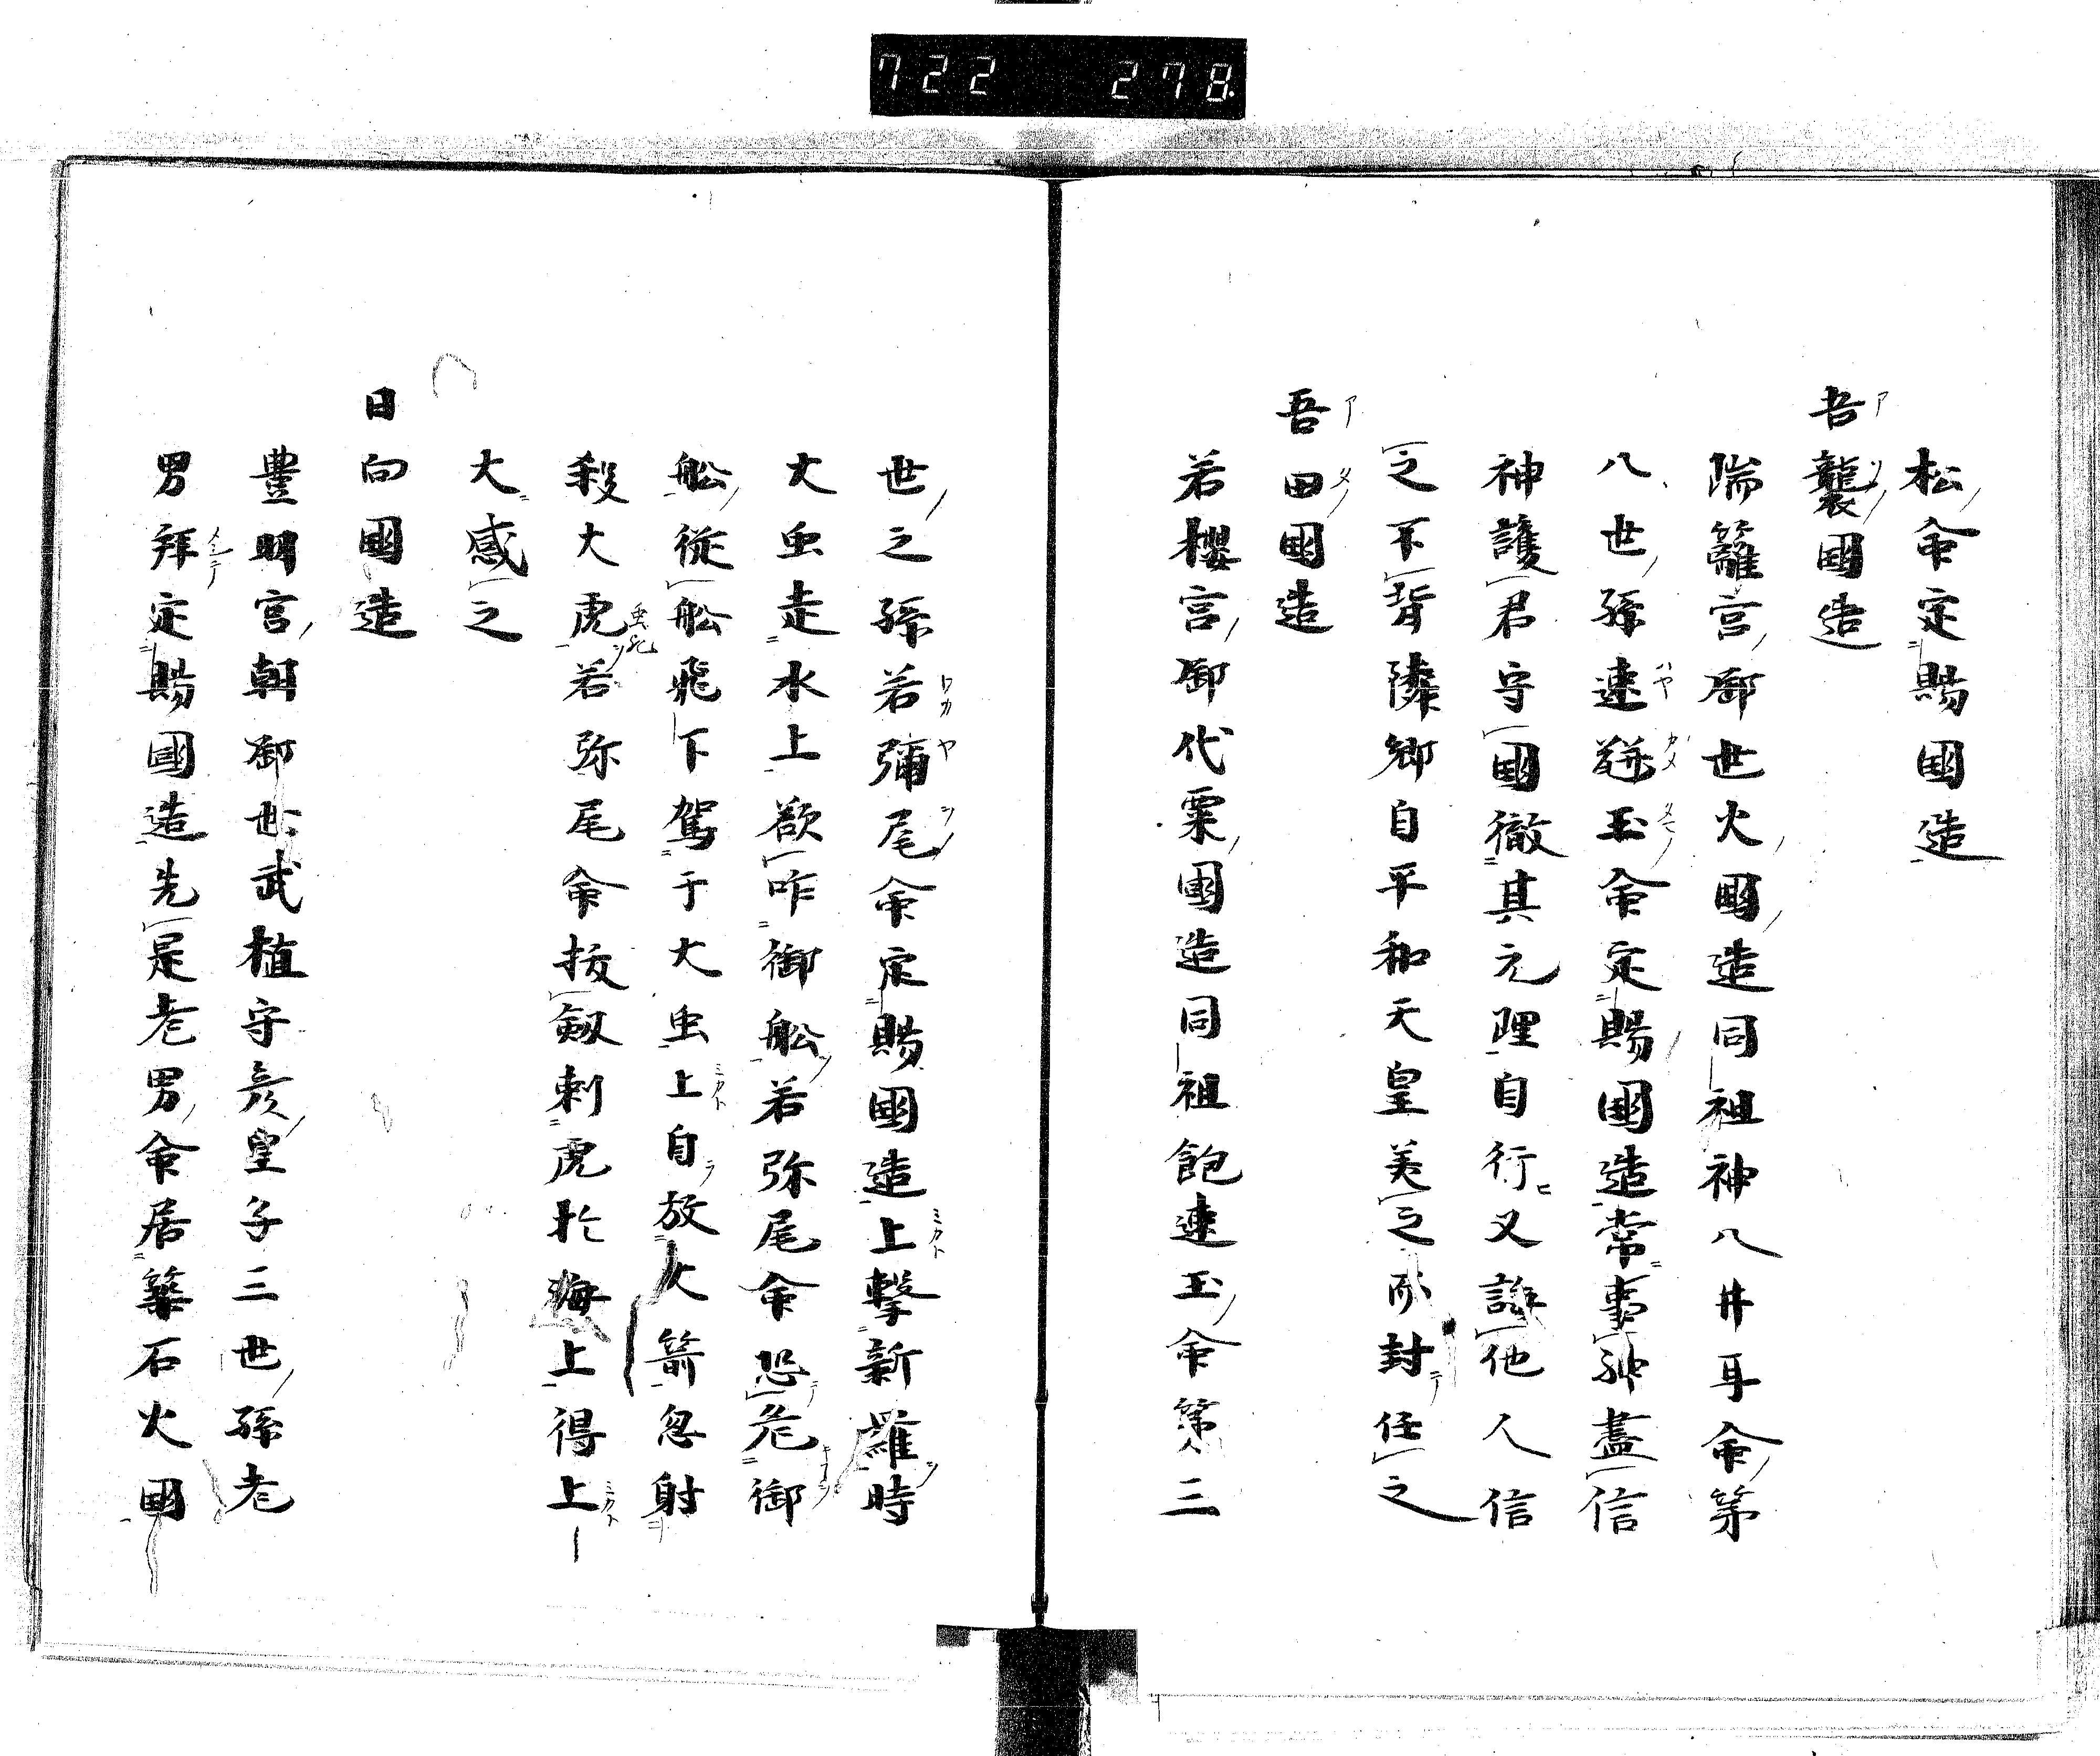 722 278
松命定賜國造
吾襲國造
瑞籬宮御世火國造同祖神八井耳命第
八世孫速瓶玉命定賜國造常事神盡信
神護君守國徹其元理自行又諫他人信
之不背隣鄉自平和天皇美之所封任之
吾田國造
若櫻宮御代粟國造同祖飽速玉命第三
世之孫若彌尾命定賜國造上擊新羅時
大虫走水上欲咋御舩若弥尾命恐危御
舩從舩飛下駕于大虫上自放火箭忽射
殺大虎若弥尾命拔劔刺虎於海上得上
大感之
日向國造
豊明宮朝御世武植守彦皇子三世孫老
男拜定賜國造先是老男命居築石火國